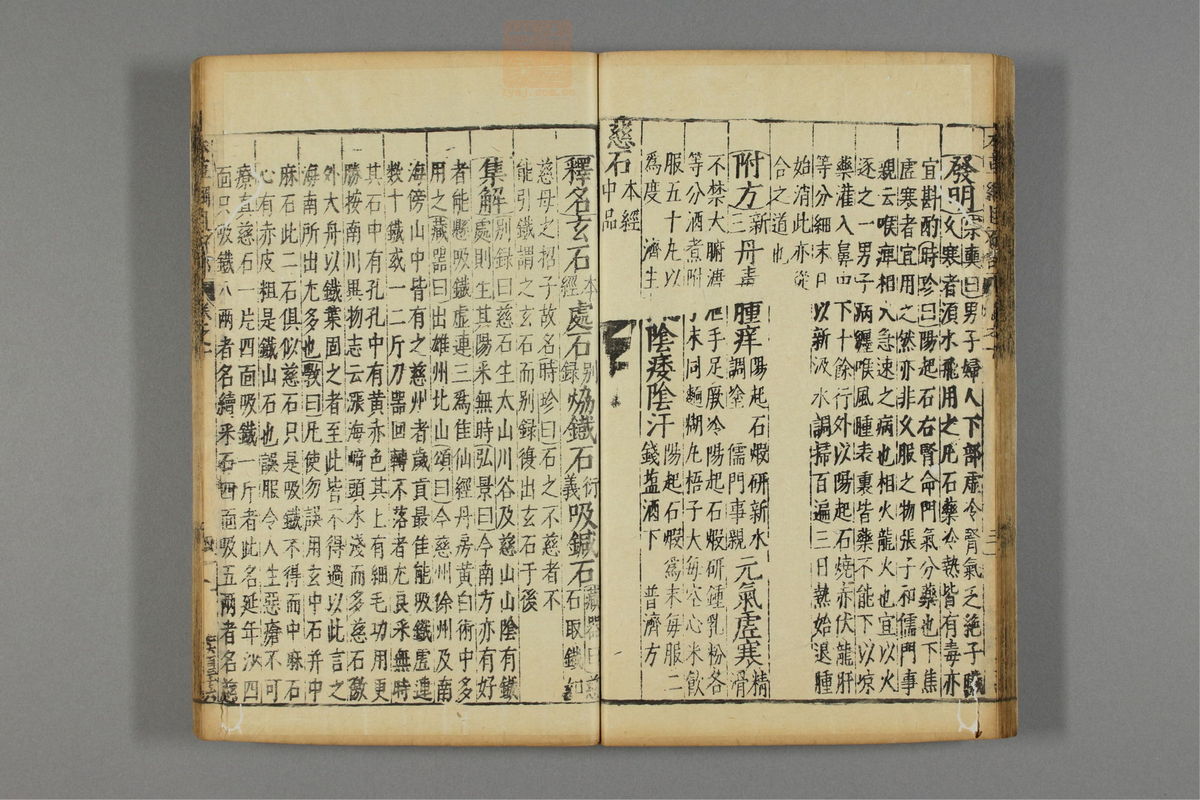 發明宗奭曰男子婦人下部虛冷腎氣乏絶子
久寒者須水飛用之凡石藥冷熱皆有毒亦
宜斟酌時珍曰陽起石右腎命門氣分藥也下焦
虛寒者宜用之然亦非久服之物張子和儒門事
親云喉痺相火急速之病也相火龍火也宜以火
逐之一男子病纏喉風腫表裏皆藥不能下以凉
藥灌入鼻中下十餘行外以陽起石燒赤伏龍肝
等分細末日以新汲水調掃百遍三日熱始退腫
始消此亦從
合之道也
附方新三丹毒腫痒陽起石煆研新水調塗 儒門事親 元氣虛寒精滑
不禁大腑溏泄手足厥冷陽起石煆研鍾乳粉各
等分酒煮附子末同麪糊丸梧子大每空心米飲
服五十丸以 陰痿陰汗陽起石煆爲末每服二
爲度 濟生 錢鹽酒下 普濟方
慈石本經中品
釋名玄石本經處石别録熁鐵石衍義吸鍼石藏器曰慈石取鐵如
慈母之招子故名時珍曰石之不慈者不
能引鐵謂之玄石而别録復出玄石于後
集解别録曰慈石生太山川谷及慈山山陰有鐵
處則生其陽采無時弘景曰今南方亦有好
者能懸吸鐵虛連三爲佳仙經丹房黄白術中多
用之藏器曰出雄州北山頌曰今慈州徐州及南
海傍山中皆有之慈州者歲貢最佳能吸鐵虛連
數十鐵或一二斤刀器回轉不落者尤良采無時
其石中有孔孔中有黄赤色其上有細毛功用更
勝按南川異物志云漲海崎頭水淺而多慈石徼
外大舟以鐵葉固之者至此皆不得過以此言之
海南所出尤多也斆曰凡使勿誤用玄中石并中
麻石此二石俱似慈石只是吸鐵不得而中麻石
心有赤皮粗是鐵山石也誤服令人生惡瘡不可
療真慈石一片四面吸鐵一斤者此名延年沙四
面只吸鐵八兩者名續采石四面吸五兩者名慈